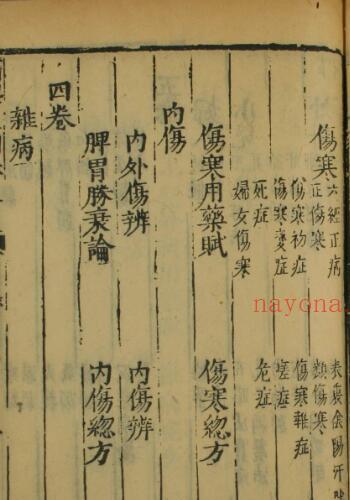 傷寒 六經正病 表裏陰陽汗
正傷寒 類傷寒
傷寒初症 傷寒雜症
傷寒變症 瘥症
死症 危症
婦女傷寒
傷寒用藥賦 傷寒總方
內傷
內外傷辨 內傷辨
脾胃勝衰論 內傷總方
四卷
雜病
nayona.